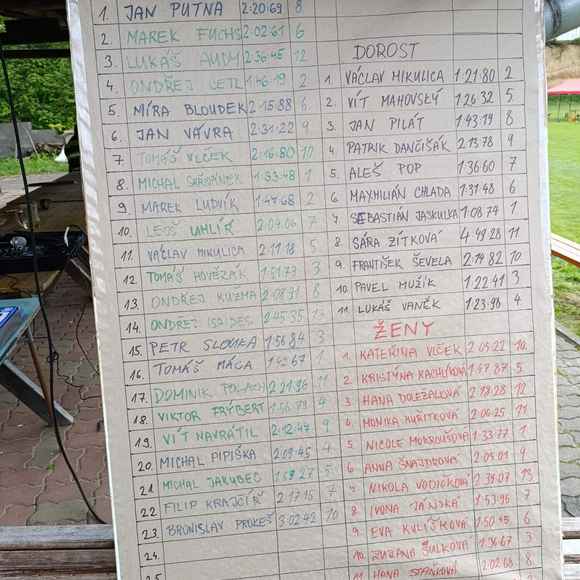 1. JAN PUTNA 2:20:69 8
2. MAREK FUCHS 2:02:61 6
3. LUKÁŠ 2:36:45 12
4. ONDŘEJ 1:46:19 2
5. MÍRA BLOUDEK 2:15:88 6
6. JAN VÁVRA 2:31:22 9
7. TOMÁŠ VLČEK 2:16:80 10
8. MICHAL 1:33:48 1
9. MAREK LUDVÍK 2
10. LEOŠ UHLÍŘ 2:04:06 7
11. VÁCLAV MIKULICA 2:11:18 5
12. TOMÁŠ 1:51:73 3
13. ONDŘEJ KUZMA 2:08:31 8
14. ONDŘEJ 2:45:35 13
15. PETR SLOUKA 1:56:84 3
16. TOMÁŠ MÁCA 1
17. DOMINIK 2:21:96 11
18. VIKTOR FRÝBERT 1:56:79 4
19. VÍT NAVRÁTIL 2:12:47 9
20. MICHAL PIPIŠKA 2:09:45 4
21. MICHAL JAKUBEC 5
22. FILIP KRAJČÍŘ 2:17:15
23. BRONISLAV PROKEŠ 3:02:43 10
24.
DOROST
1. VÁCLAV MIKULICA 1:21:80 2
2. VÍT MAHOVSKÝ 1:26:32 5
3. JAN PILÁT 1:43:19 8
4. PATRIK DANČIŠÁK 2:13:78 9
5. ALEŠ POP 1:36:60 7
6. MAXMILIÁN CHLADA 1:31:48 6
7. SEBASTIÁN JASKULKA 1:08:74 1
8. SÁRA ZÍTKOVÁ 4:49:28 11
9. FRANTIŠEK ŠEVELA 2:14:82 10
10 PAVEL MUŽÍK 1:22:41 3
11. LUKÁŠ VANĚK 1:23:98 4
ŽENY
1. KATEŘINA VLČEK 2:09:22 10.
2. KRISTÝNA 1:47:87 5
3. HANA DOLEŽALOVÁ 2:18:28 12
4. MONIKA 2:06:25 11
5. NICOLE MOKROUŠOVÁ 1:33:77 1
6. ANNA ŠNAJDROVÁ 2:05:01 9
7. NIKOLA VODIČKOVÁ 2:39:07 13
8. IVONA JÁNSKÁ 1:53:96 7
9. EVA 1:50:45 6
10. ZUZANA ŠULKOVÁ 1:36:67 3
11. HANA STAŇKOVÁ 2:02:68 8